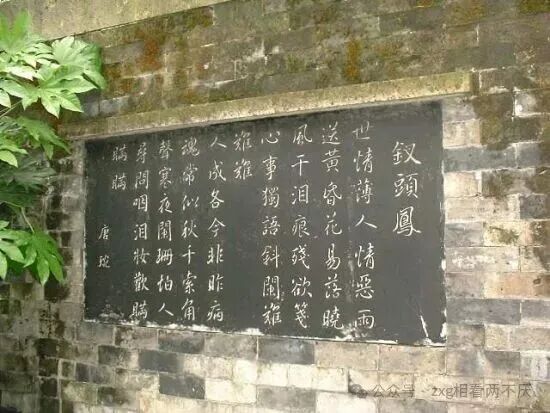 釵頭鳳
世情薄人情惡雨
送黃昏花易落曉
風干泪痕殘欲箋
心事獨語斜闌難
難難
人成各今非昨病
魂常似秋千索角
聲寒夜闌珊怕人
尋問咽泪妝歡瞞
瞞瞞
唐琬
公众号 · zxg相看两不厌